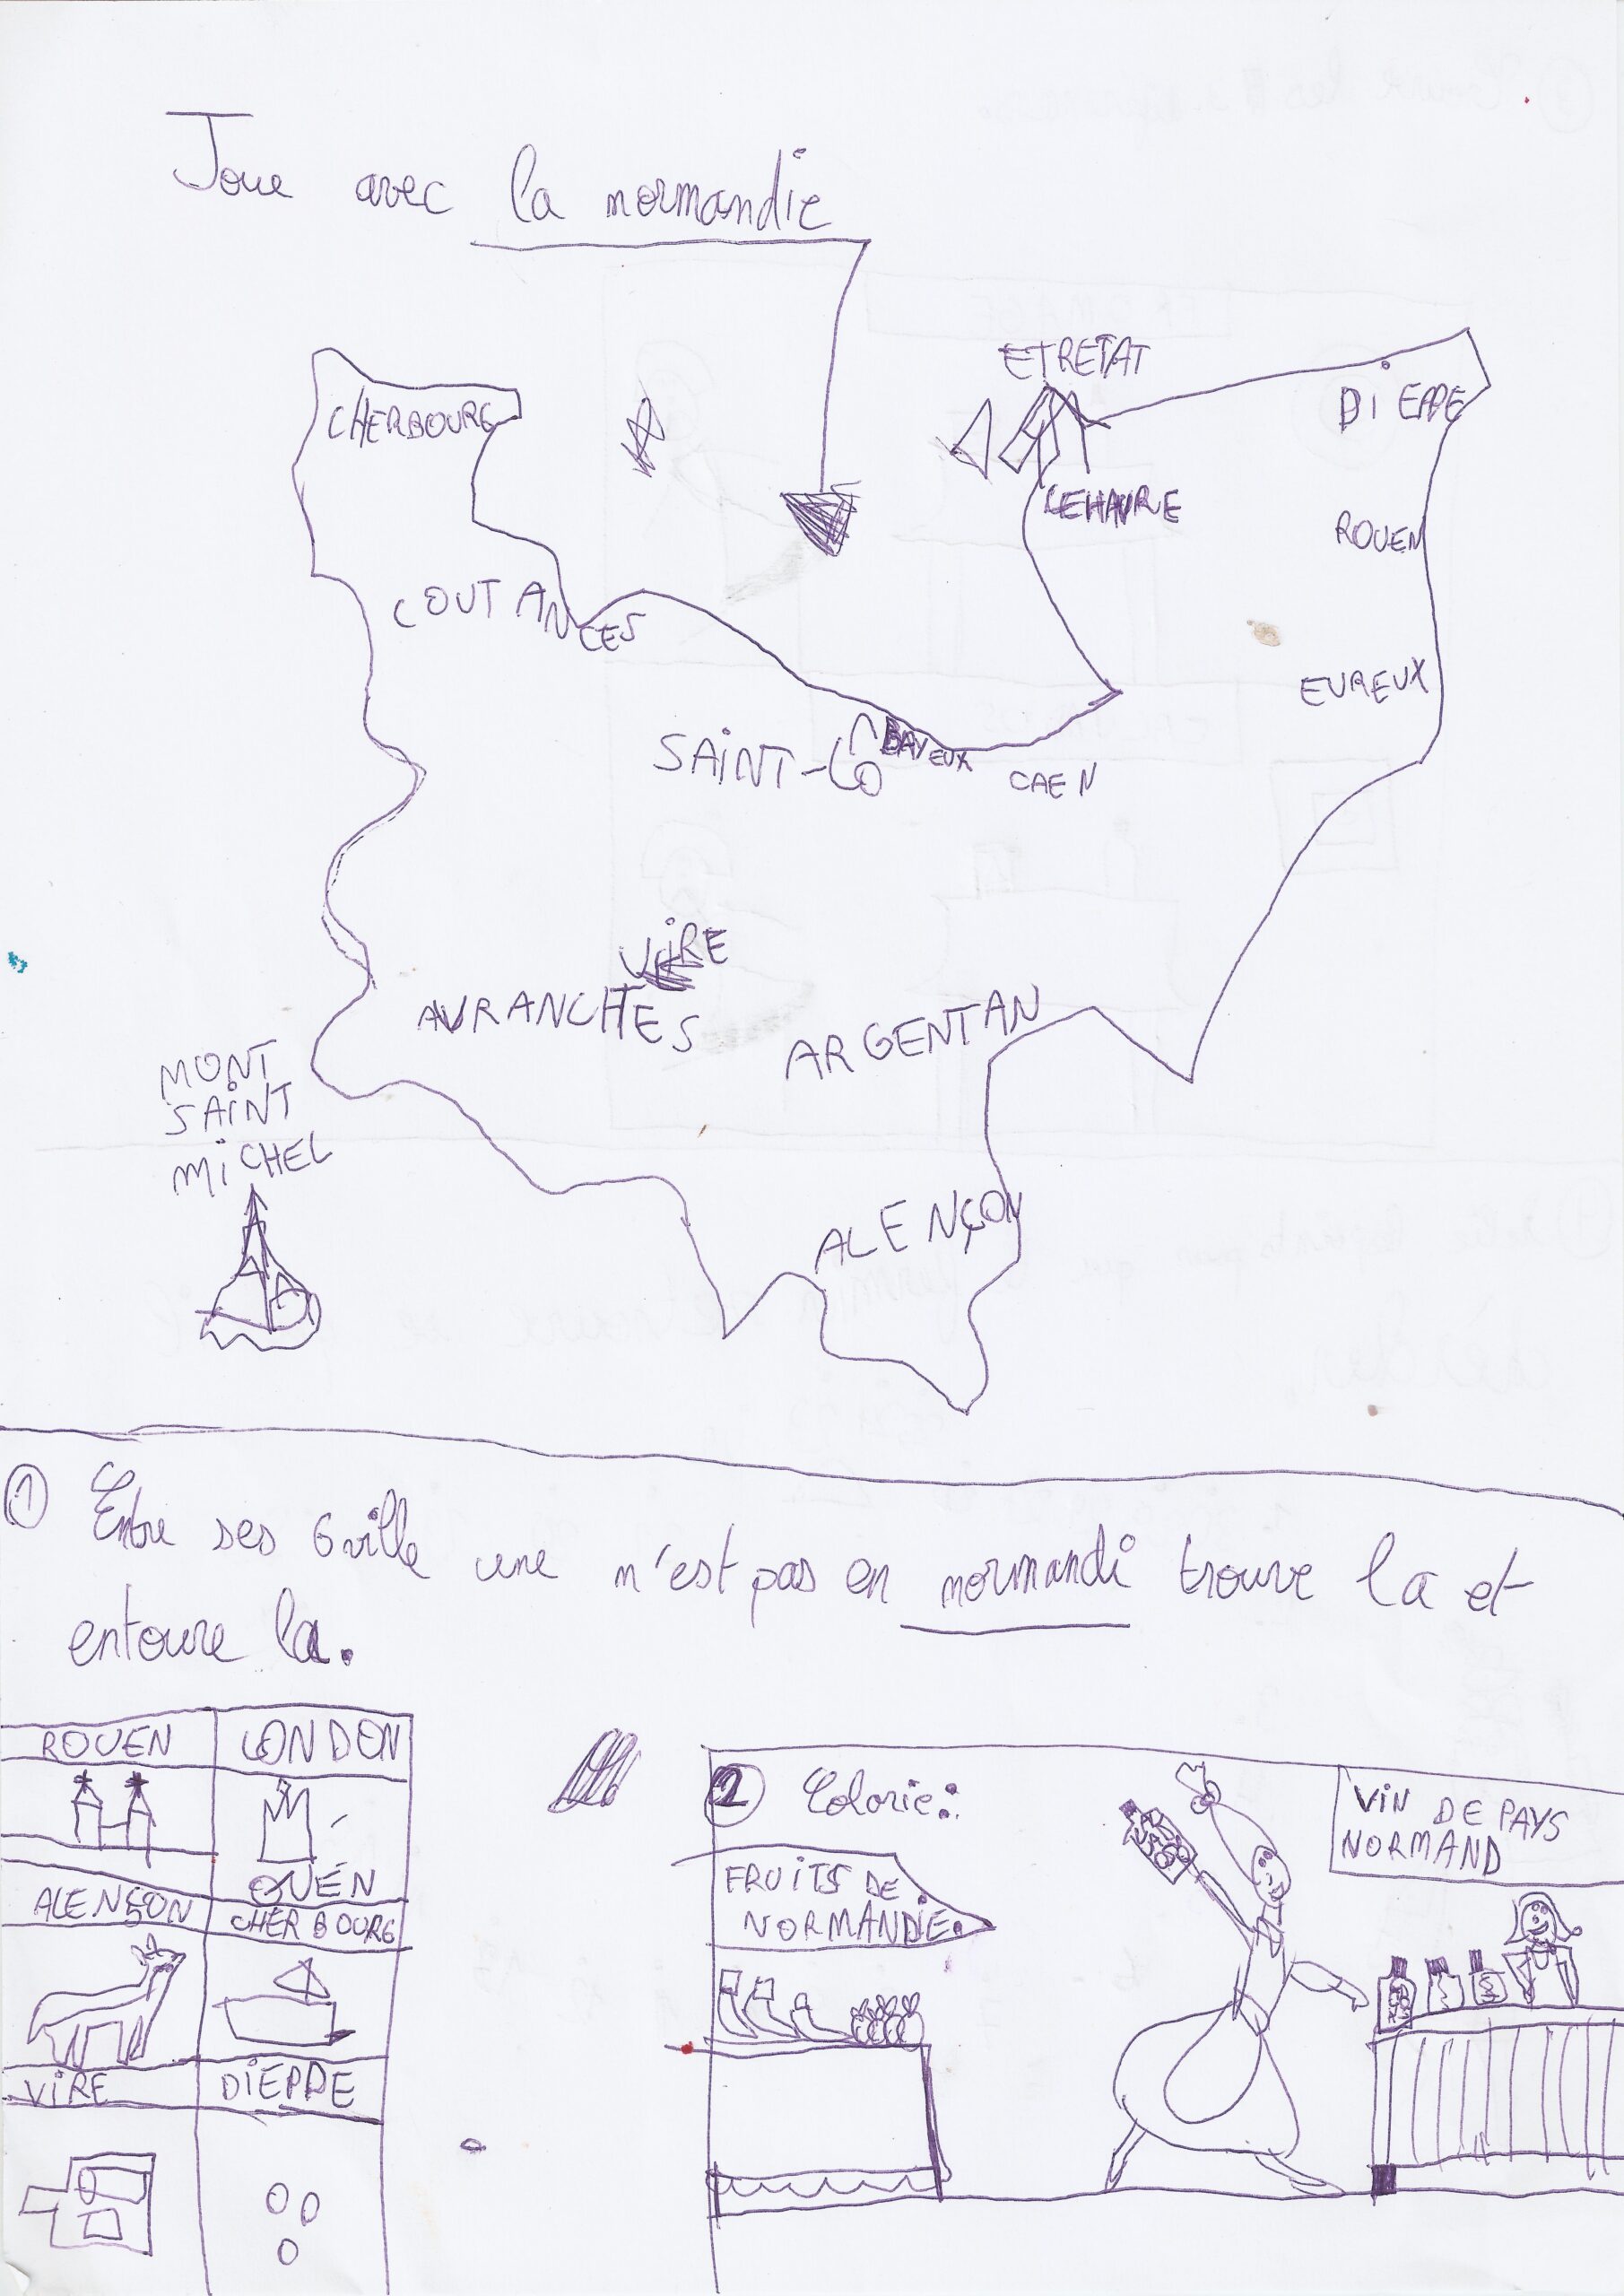 Joue avec la normandie
ETRETAT
DiEPPE
CHERBOURG
LEHAVRE
ROUEN
COUTANCES
EUREUX
SAiNT-LO
BAYEUX
CAEN
ViRE
AVRANCHES
ARGENTAN
MONT
SAiNT
MiCHEL
ALENÇON
1 Entre ses 6 ville une n'est pas en normandi trouve la et
entoure la.
ROUEN
LONDON
ALENÇON
CHERBOURG
ViRE
DiEPPE
2 Colorie:
FRUiTS DE
NORMANDiE.
ViN DE PAYS
NORMAND